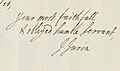 Your most faithfull
& obliged humble servant,
J Jurin